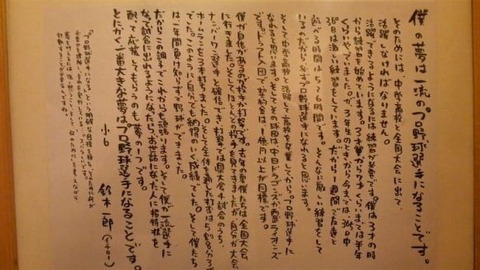 僕の夢は一流のプロ野球選手になることです。
そのためには、中学、高校と全国大会に出て、
活躍しなければなりません。
活躍できるようになるには練習が必要です。僕は3才の時
から練習を始めています。3才から7才までは半年
くらいやっていましたが、3年生のときから今までは、365日中
360日は激しい練習をしています。だから1週間で友達と
遊べる時間は5~6時間です。そんなに激しい練習をして
いるのだから、必ずプロ野球選手になれると思います。
そして中学、高校と活躍して高校を卒業してからプロ野球選手に
なれると思います。そしてその球団は中日ドラゴンズか西武ライオンズ
です。ドラフト入団で契約金は1億円以上が目標です。
僕が自信があるのは投手か打撃です。去年の夏僕たちは全国大会
に行きました。そしてほとんどの投手を見てきましたが自分が大会
ナンバーワン選手と確信でき打撃では県大会4試合のうち、
ホームラン3本打ちました。そして全体を通した打率は5割8分3厘
でした。このように自分でも納得のいく成績でした。そして僕たち
は一年間負け知らずで野球ができました。
だからこの調子でこれからも頑張ります。そして僕が一流選手に
なって試合に出れるようになったらお世話になった人に招待状を
配って応援してもらうのも夢の1つです。
とにかく一番大きな夢はプロ野球選手になることです。
小6 鈴木一郎